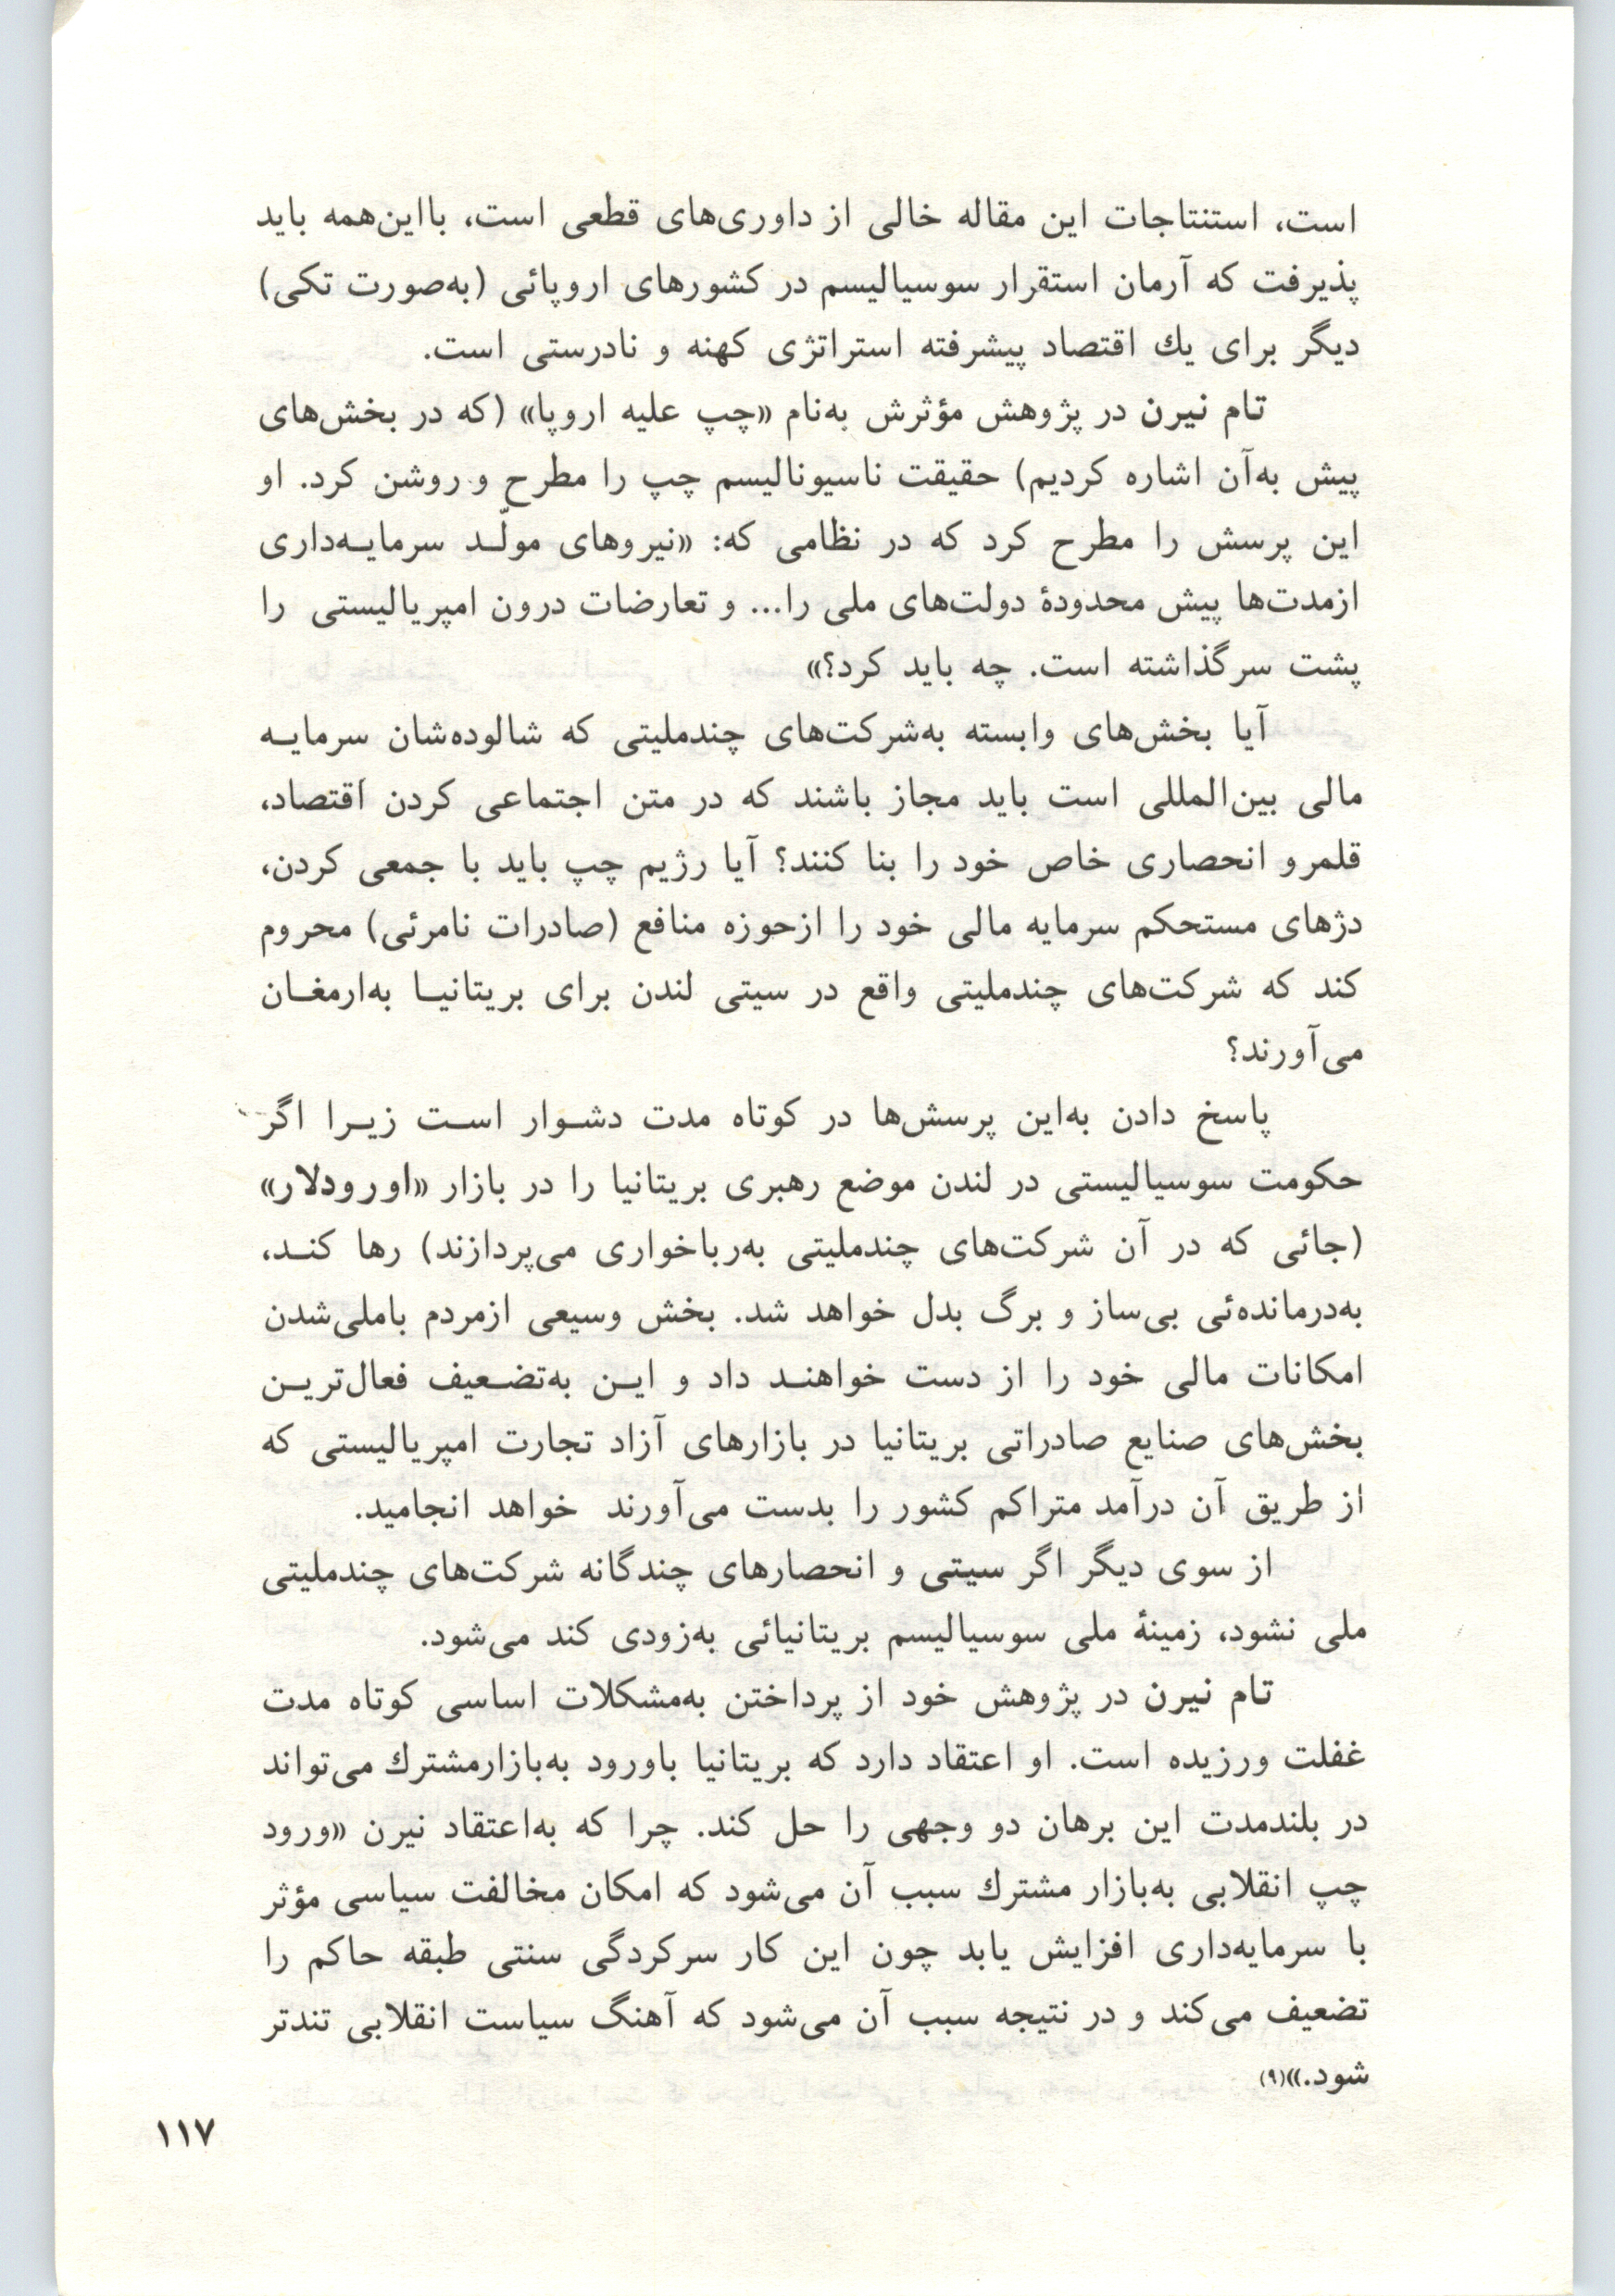 است، استنتاجات این مقاله خالی از داوری‌های قطعی است، بااین‌همه باید
پذیرفت که آرمان استقرار سوسیالیسم در کشورهای اروپائی (به‌صورت تکی)
دیگر برای یك اقتصاد پیشرفته استراتژی کهنه و نادرستی است.
تام نیرن در پژوهش مؤثرش به‌نام «چپ علیه اروپا» (که در بخش‌های
پیش به‌آن اشاره کردیم) حقیقت ناسیونالیسم چپ را مطرح و روشن کرد. او
این پرسش را مطرح کرد که در نظامی که: «نیروهای مولّـد سرمایـه‌داری
ازمدت‌ها پیش محدودهٔ دولت‌های ملی را... و تعارضات درون امپریالیستی را
پشت سرگذاشته است. چه باید کرد؟»
آیا بخش‌های وابسته به‌شرکت‌های چندملیتی که شالوده‌شان سرمایـه
مالی بین‌المللی است باید مجاز باشند که در متن اجتماعی کردن اقتصاد،
قلمرو انحصاری خاص خود را بنا کنند؟ آیا رژیم چپ باید با جمعی کردن،
دژهای مستحکم سرمایه مالی خود را ازحوزه منافع (صادرات نامرئی) محروم
کند که شرکت‌های چندملیتی واقع در سیتی لندن برای بریتانیـا به‌ارمغـان
می‌آورند؟
پاسخ دادن به‌این پرسش‌ها در کوتاه مدت دشـوار اسـت زیـرا اگر
حکومت سوسیالیستی در لندن موضع رهبری بریتانیا را در بازار «اورودلار»
(جائی که در آن شرکت‌های چندملیتی به‌رباخواری می‌پردازند) رها کنـد،
به‌درمانده‌ئی بی‌ساز و برگ بدل خواهد شد. بخش وسیعی ازمردم باملی‌شدن
امکانات مالی خود را از دست خواهنـد داد و ایـن به‌تضـعیف فعال‌تریـن
بخش‌های صنایع صادراتی بریتانیا در بازارهای آزاد تجارت امپریالیستی که
از طریق آن درآمد متراکم کشور را بدست می‌آورند خواهد انجامید.
از سوی دیگر اگر سیتی و انحصارهای چندگانه شرکت‌های چندملیتی
ملی نشود، زمینهٔ ملی سوسیالیسم بریتانیائی به‌زودی کند می‌شود.
تام نیرن در پژوهش خود از پرداختن به‌مشکلات اساسی کوتاه مدت
غفلت ورزیده است. او اعتقاد دارد که بریتانیا باورود به‌بازارمشترك می‌تواند
در بلندمدت این برهان دو وجهی را حل کند. چرا که به‌اعتقاد نیرن «ورود
چپ انقلابی به‌بازار مشترك سبب آن می‌شود که امکان مخالفت سیاسی مؤثر
با سرمایه‌داری افزایش یابد چون این کار سرکردگی سنتی طبقه حاکم را
تضعیف می‌کند و در نتیجه سبب آن می‌شود که آهنگ سیاست انقلابی تندتر
شود.»(۹)
۱۱۷